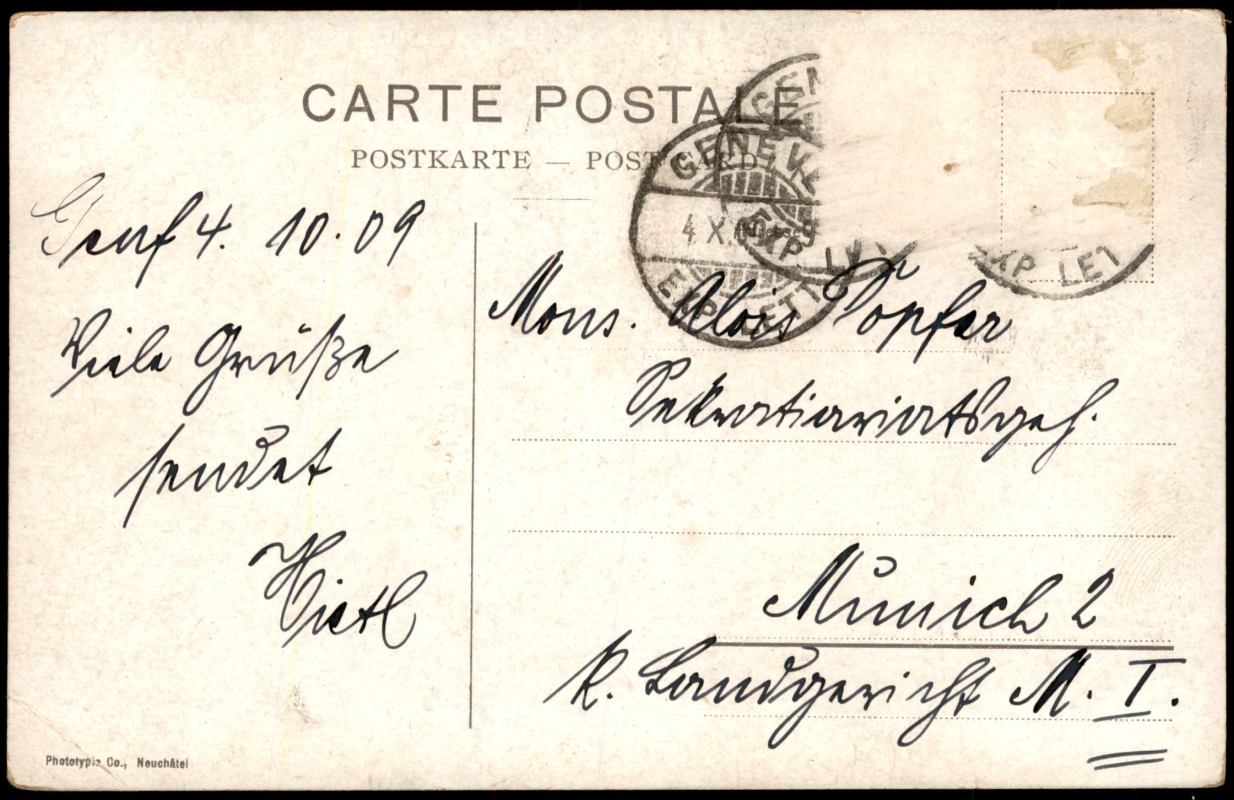 CARTE POSTALE
POSTKARTE — POST CARD
GENÈVE
4 X.
EXP. LETT
EXP LET
Genf 4. 10. 09
Viele Grüße
sendet
Hietl
Mons. Alois Popfer
Sekratiariatsgeh.
Munich 2
K. Landgericht M. I.
Phototypie Co., Neuchâtel